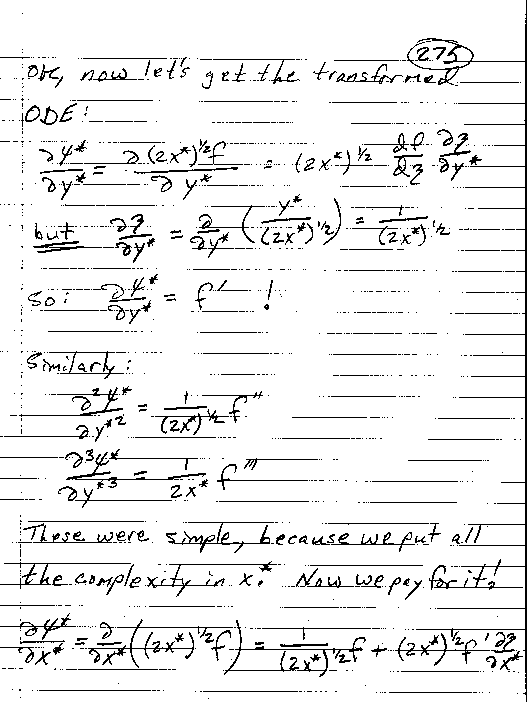 275
OK, now let's get the transformed
ODE:
∂ψ*/∂y* = ∂(2x*)^1/2 f / ∂y* = (2x*)^1/2 df/dη ∂η/∂y*
but ∂η/∂y* = ∂/∂y* (y*/(2x*)^1/2) = 1/(2x*)^1/2
So: ∂ψ*/∂y* = f' !
Similarly:
∂²ψ*/∂y*² = 1/(2x*)^1/2 f''
∂³ψ*/∂y*³ = 1/2x* f'''
These were simple, because we put all
the complexity in x*. Now we pay for it!
∂ψ*/∂x* = ∂/∂x* ((2x*)^1/2 f) = 1/(2x*)^1/2 f + (2x*)^1/2 f' ∂η/∂x*